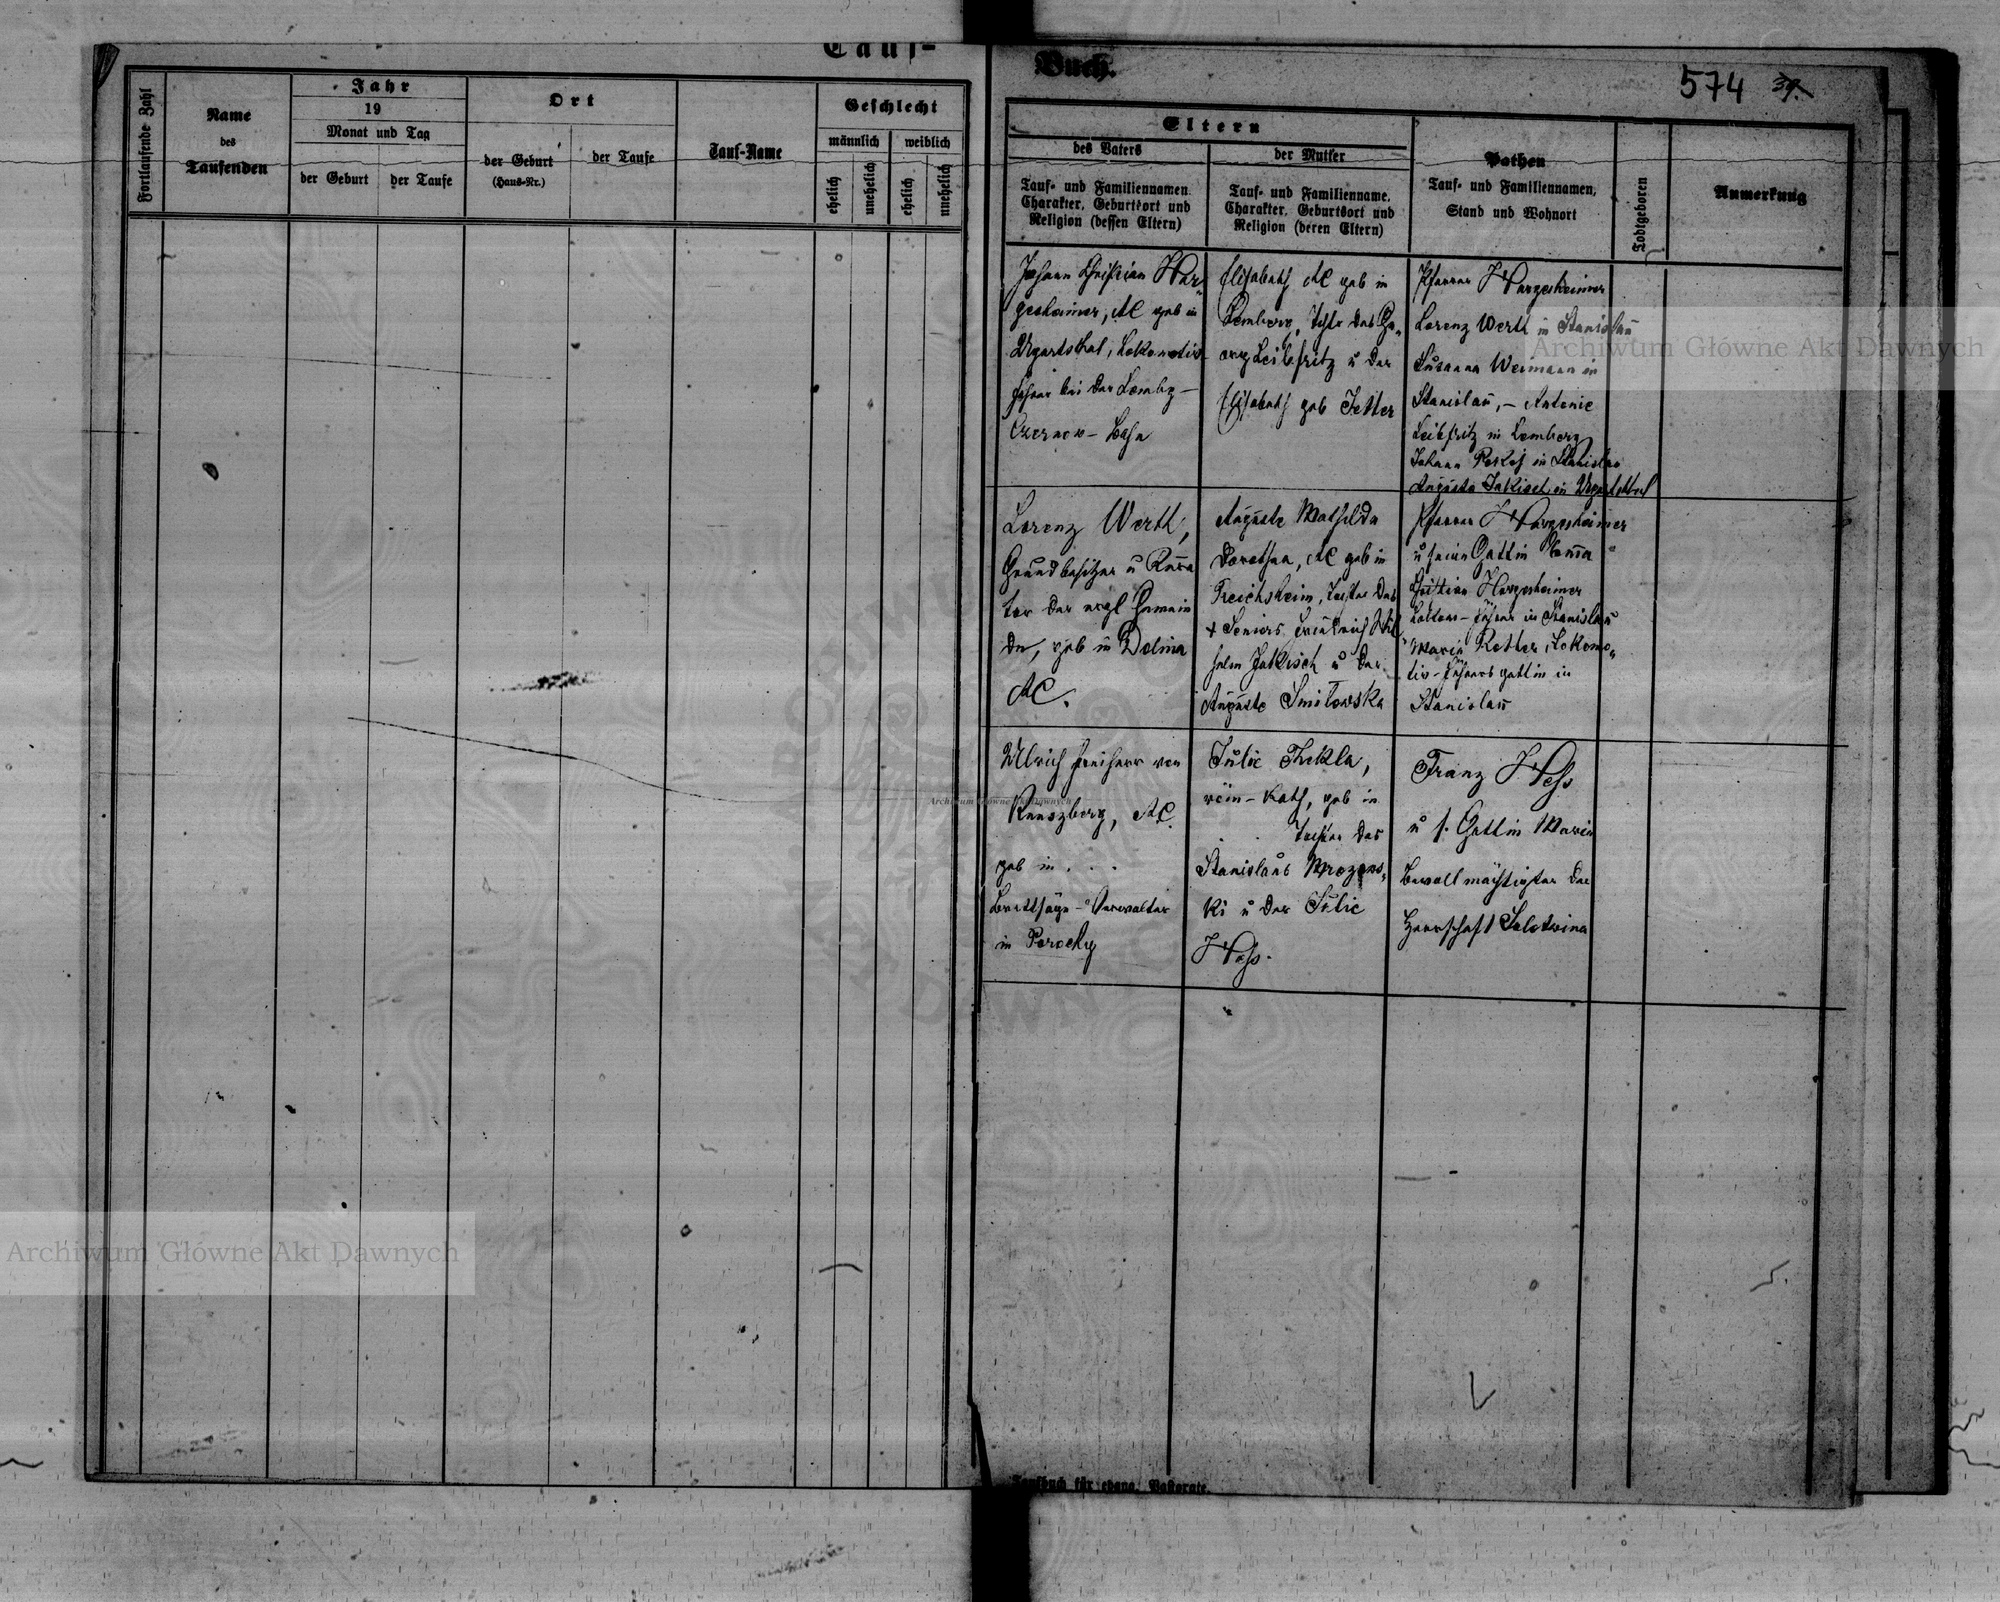 Tauf-
Fortlaufende Zahl
Name
des
Taufenden
Jahr
19
Monat und Tag
der Geburt
der Taufe
Ort
der Geburt
(Haus-Nr.)
der Taufe
Tauf-Name
Geschlecht
männlich
weiblich
ehelich
unehelich
ehelich
unehelich
Buch.
574 39.
Eltern
des Vaters
Tauf- und Familiennamen,
Charakter, Geburtsort und
Religion (dessen Eltern)
der Mutter
Tauf- und Familienname,
Charakter, Geburtsort und
Religion (deren Eltern)
Pathen
Tauf- und Familiennamen,
Stand und Wohnort
Todtgeboren
Anmerkung
Johann Christian Har-
gesheimer, AC geb in
Ugartsthal, Lokomotiv-
führer bei der Lemberg-
Czernow- Bahn
Elisabeth AC geb in
Lemberg, Tchtr des Ge-
org Leibfritz u der
Elisabeth geb Jetter
Pfarrer Hargesheimer
Lorenz Werth in Stanislau
Susanna Weimann in
Stanislau, - Antonie
Leibfritz in Lemberg
Johann in Stanislau
Augusta Jakisch in Ugartsthal
Lorenz Werth,
Grundbesitzer u Kura
tor der evgl Gemein
de, geb in Dolina
AC.
Auguste Mathilde
Dorothea, AC geb in
Reichsheim, Tochter des
+ Seniors Heinrich Wil
helm Jakisch u der
Auguste Smitowska
Pfarrer Hargesheimer
u seine Gattin Emma
Christian Hargesheimer
führer in Stanislau
Maria Rother, Lokomo-
tiv-führersgattin in
Stanislau
Ulrich Freiherr von
AC.
geb in . . .
Brettsäge-Verwalter
in Porochy
Julie Thekla,
röm-kath, geb in
. . Tochter des
Stanislaus Mrozows-
ki u der Julie
Hess.
Franz Hess
u s. Gattin Maria
Bevollmächtigter der
Herrschaft Solotwina
Taufbuch für evang. Pastorate.
Archiwum Główne Akt Dawnych
Archiwum Główne Akt Dawnych
Archiwum Główne Akt Dawnych